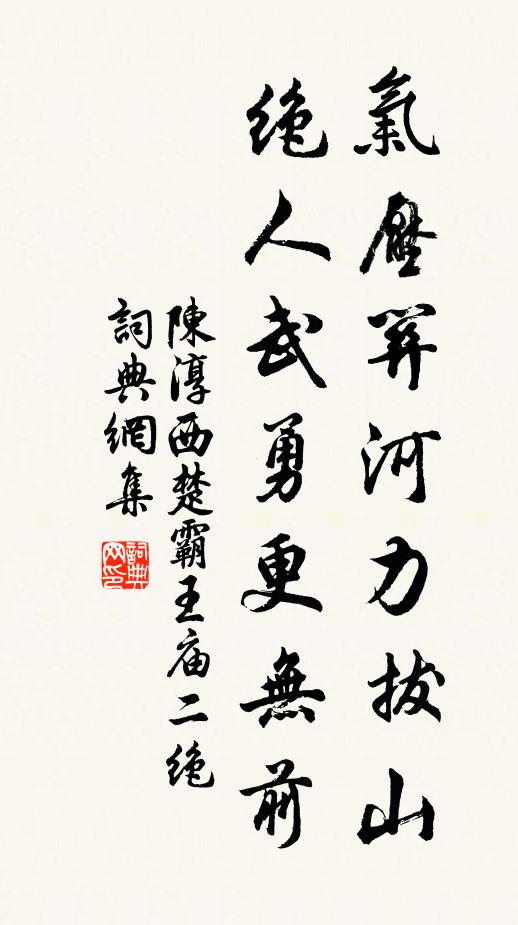 氣壓關河力拔山
絶人武勇更無前
陳淳西楚霸王庙二絶
詞典網集
詞典
网印